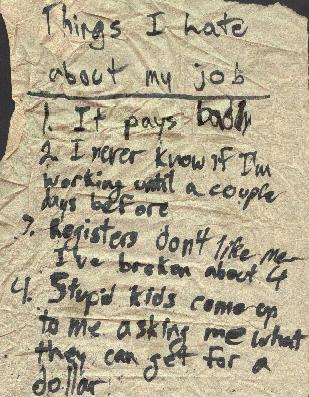 Things I hate
about my job
1. It pays badly
2. I never know if I'm
working until a couple
days before
3. Registers don't like me
I've broken about 4
4. Stupid kids come up
to me asking me what
they can get for a
dollar